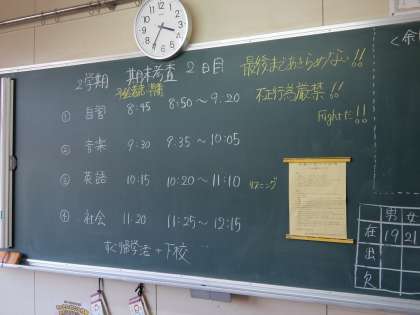 2学期 期末考査 2日目
① 自習 8:45 8:50～9:20
② 音楽 9:30 9:35～10:05
③ 英語 10:15 10:20～11:10 リスニング
④ 社会 11:20 11:25～12:15
すぐ帰学活+下校
最後まであきらめない!!
不正行為厳禁!!
Fightだ!!
男 女
在 19 21
出
欠